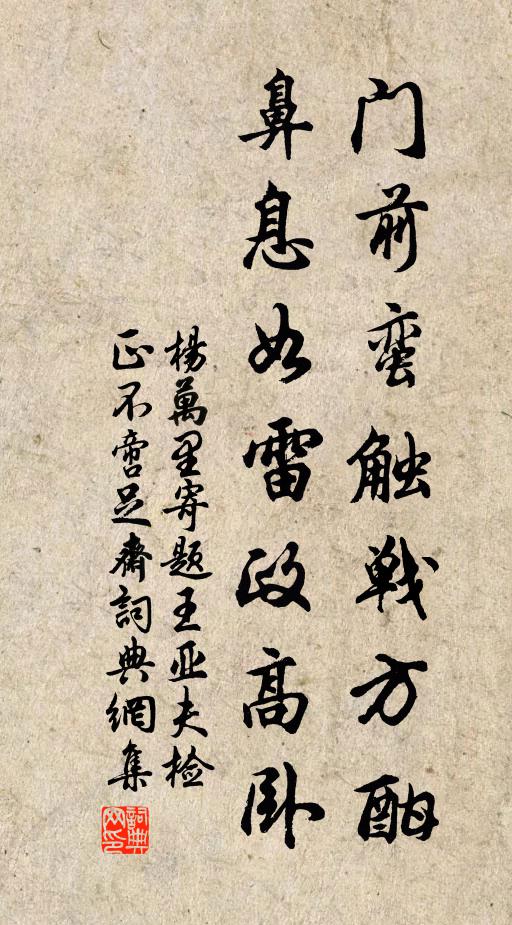 门前蛮触战方酣
鼻息如雷政高卧
杨萬里寄题王亚夫检
正不啻足齋詞典網集
詞典網印